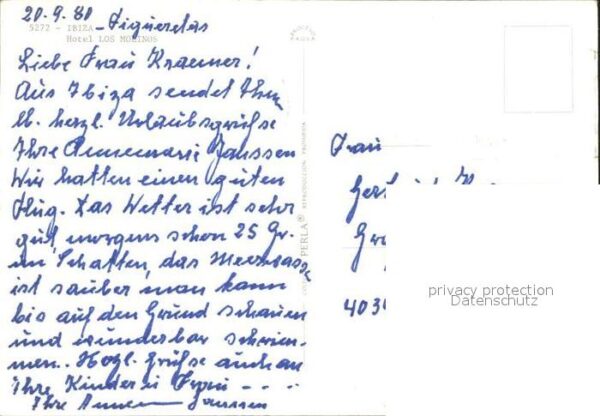 20.9.80 - Figueretas
5272 - IBIZA
Hotel LOS MOLINOS
Liebe Frau Kraemer!
Aus Ibiza sendet Ihnen
lb. herzl. Urlaubsgrüße
Ihre Annemarie Janssen
Wir hatten einen guten
Flug. Das Wetter ist sehr
gut, morgens schon 25 Gr.
im Schatten, das Meerwasser
ist sauber man kann
bis auf den Grund schauen
und wunderbar schwim-
men. Hzgl. Grüße auch an
Ihre Kinder u Frau - - -
Ihre Annem Janssen
PERLA
REPRODUCCION PROHIBIDA
Frau
Ger
Gr
403
privacy protection
Datenschutz